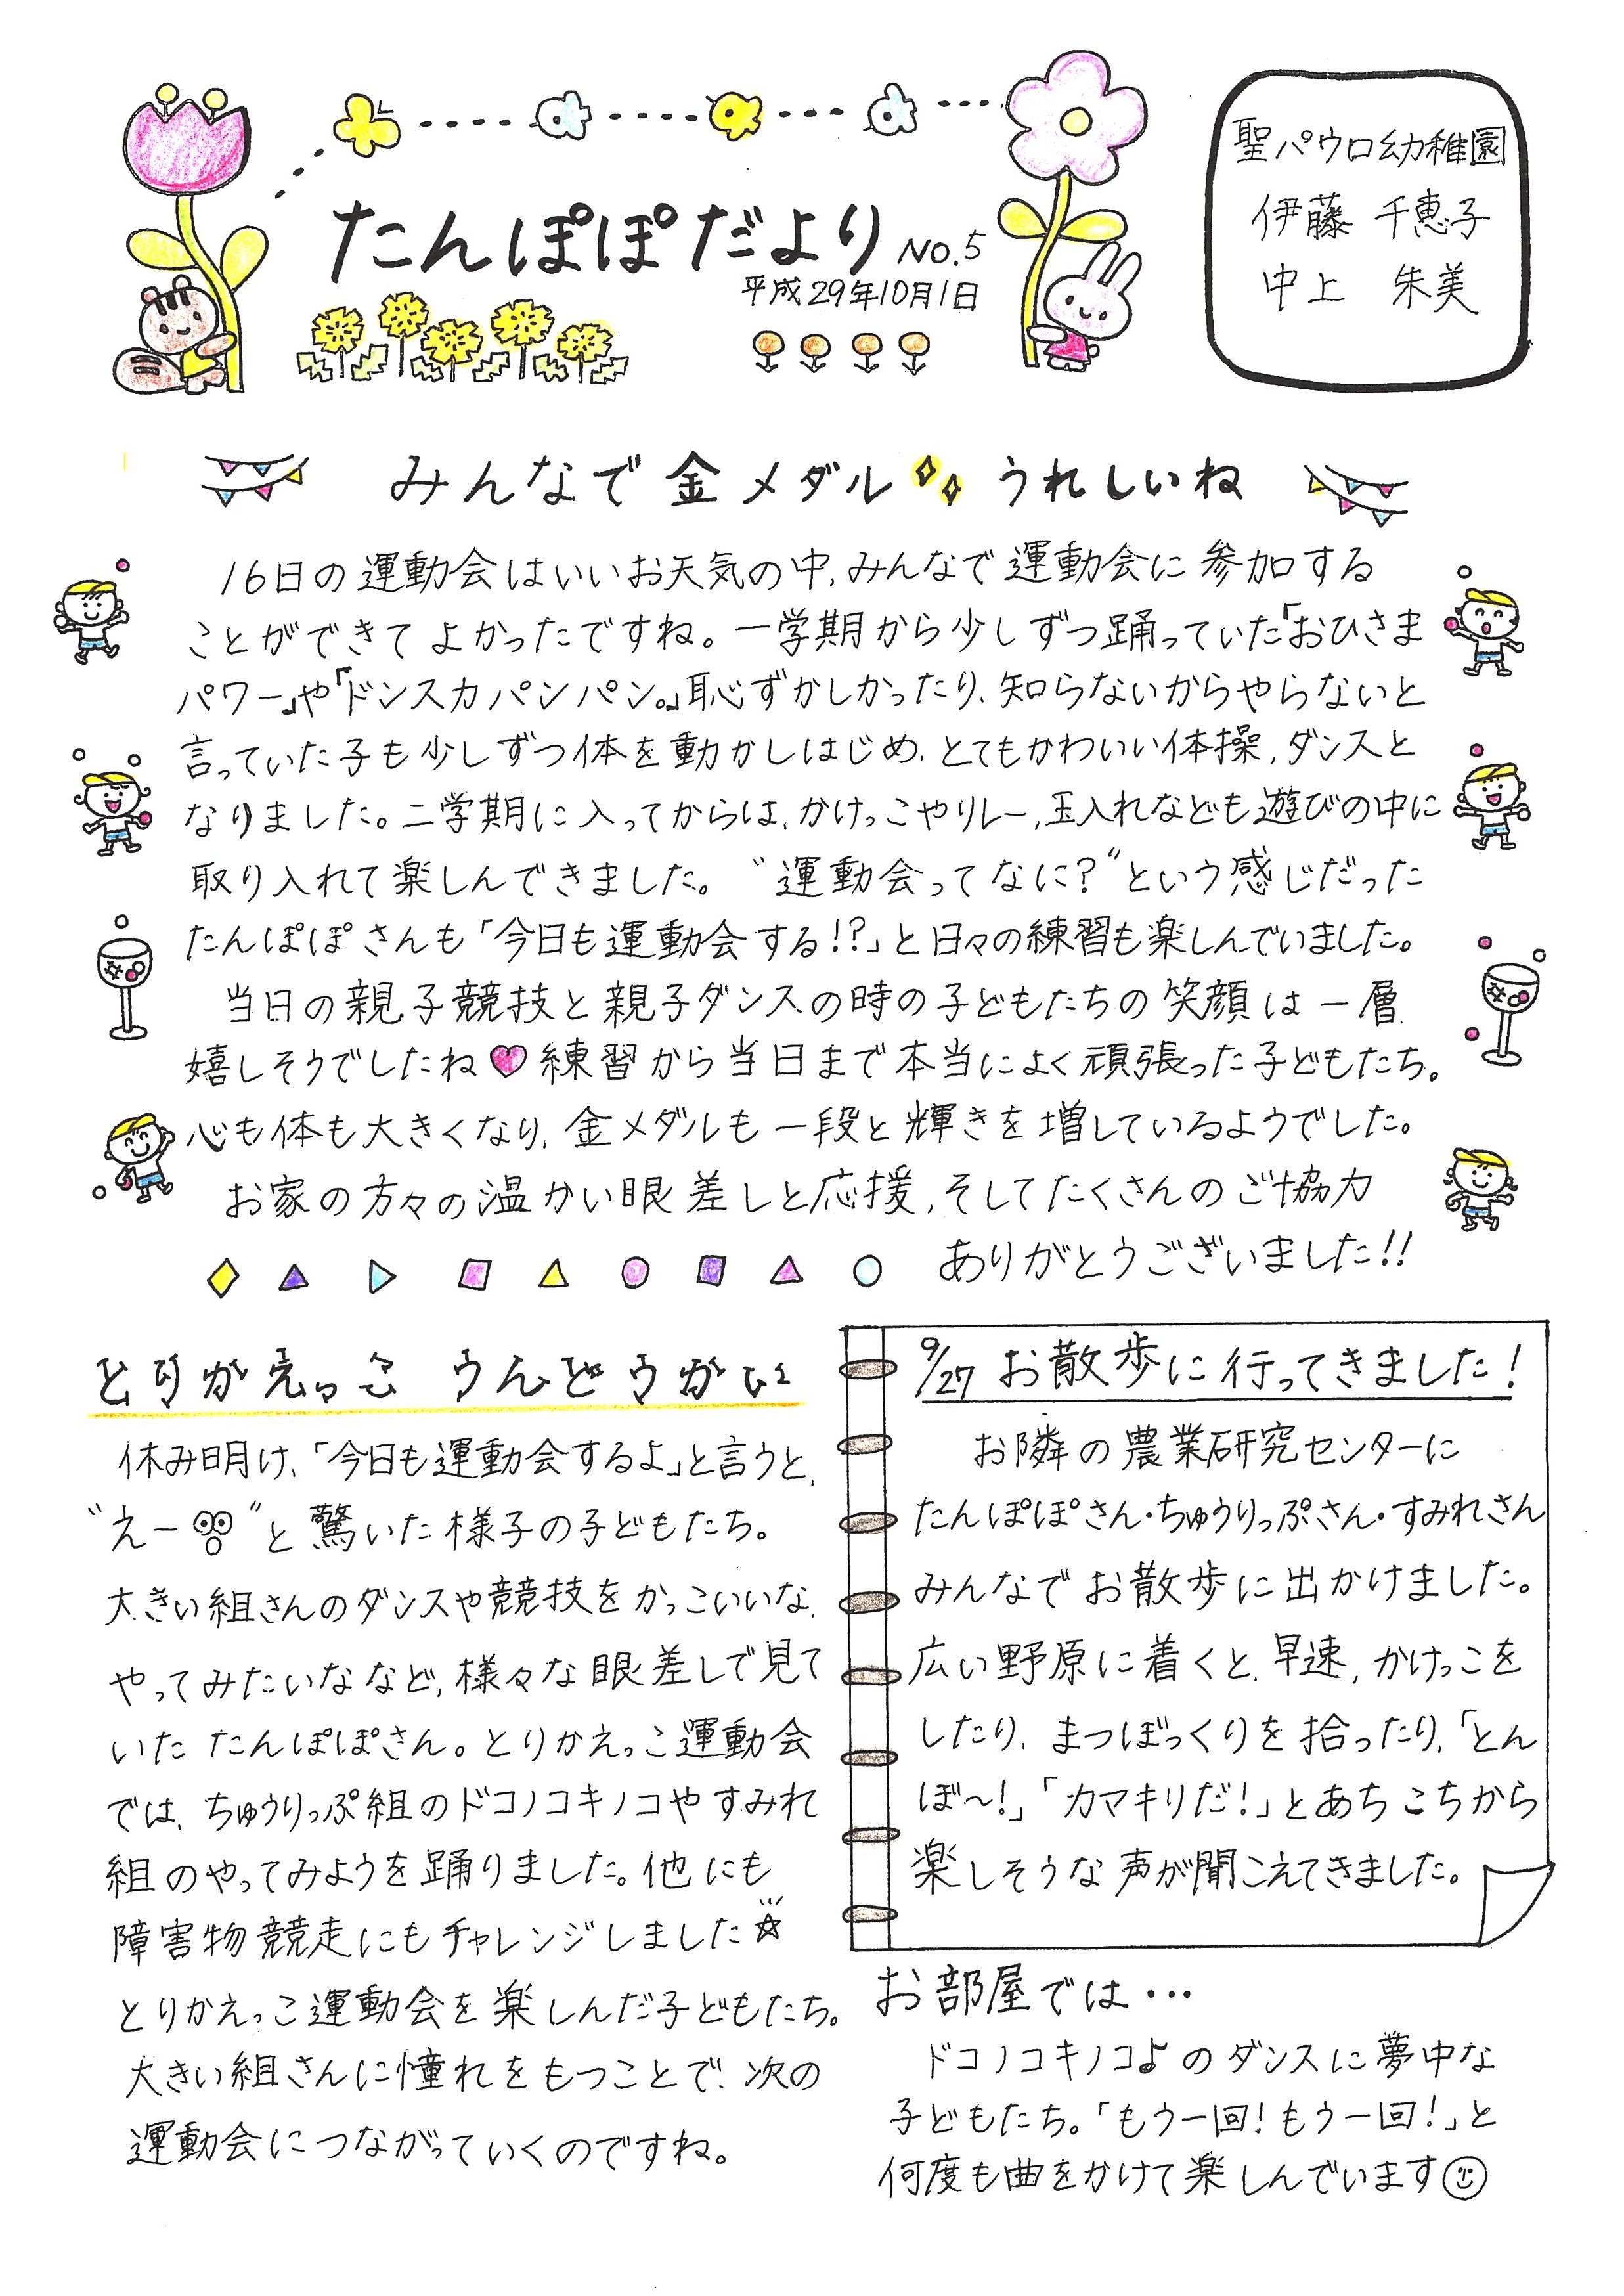 たんぽぽだより NO.5
平成29年10月1日
聖パウロ幼稚園
伊藤 千恵子
中上 朱美
みんなで金メダル うれしいね
16日の運動会はいいお天気の中、みんなで運動会に参加する
ことができてよかったですね。一学期から少しずつ踊っていた「おひさま
パワー」や「ドンスカパンパン。」恥ずかしかったり、知らないからやらないと
言っていた子も少しずつ体を動かしはじめ、とてもかわいい体操、ダンスと
なりました。二学期に入ってからは、かけっこやリレー、玉入れなども遊びの中に
取り入れて楽しんできました。〝運動会ってなに?〟という感じだった
たんぽぽさんも「今日も運動会する!?」と日々の練習も楽しんでいました。
当日の親子競技と親子ダンスの時の子どもたちの笑顔は一層
嬉しそうでしたね♥練習から当日まで本当によく頑張った子どもたち。
心も体も大きくなり、金メダルも一段と輝きを増しているようでした。
お家の方々の温かい眼差しと応援、そしてたくさんのご協力
ありがとうございました!!
とりかえっこ うんどうかい
休み明け、「今日も運動会するよ」と言うと、
〝えー 〟と驚いた様子の子どもたち。
大きい組さんのダンスや競技をかっこいいな、
やってみたいななど、様々な眼差しで見て
いた たんぽぽさん。とりかえっこ運動会
では、ちゅうりっぷ組のドコノコキノコやすみれ
組のやってみようを踊りました。他にも
障害物競走にもチャレンジしました☆
とりかえっこ運動会を楽しんだ子どもたち。
大きい組さんに憧れをもつことで、次の
運動会につながっていくのですね。
9/27 お散歩に行ってきました!
お隣の農業研究センターに
たんぽぽさん・ちゅうりっぷさん・すみれさん
みんなでお散歩に出かけました。
広い野原に着くと、早速、かけっこを
したり、まつぼっくりを拾ったり、「とん
ぼ〜!」「カマキリだ!」とあちこちから
楽しそうな声が聞こえてきました。
お部屋では…
ドコノコキノコ♪のダンスに夢中な
子どもたち。「もう一回!もう一回!」と
何度も曲をかけて楽しんでいます☺